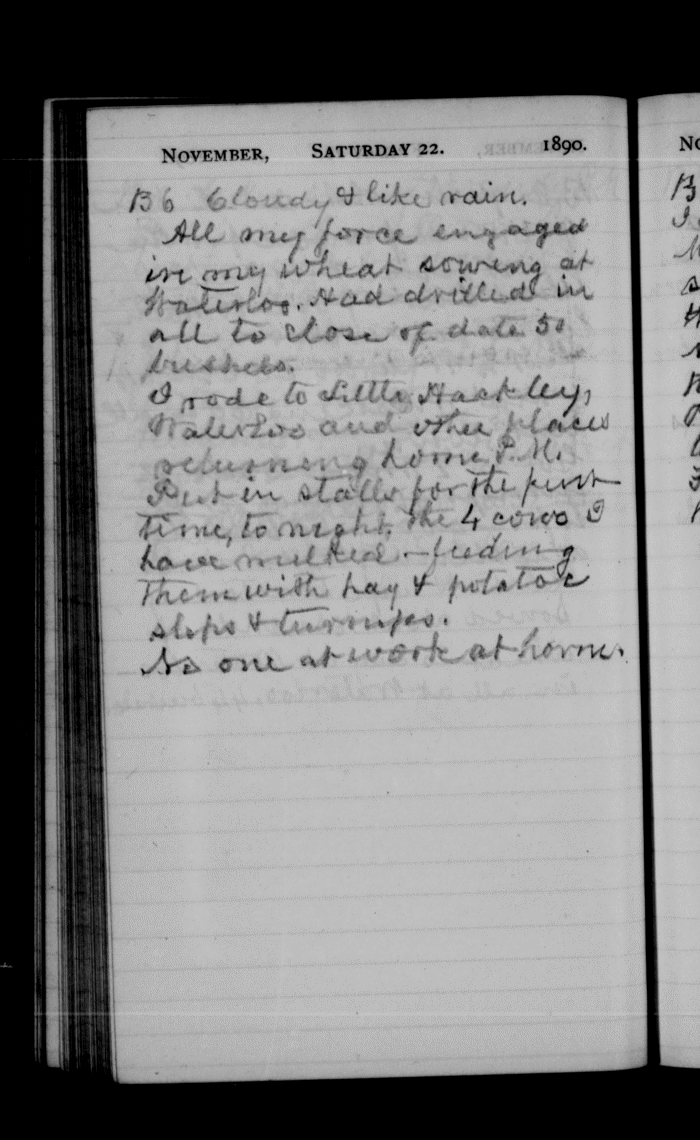 NOVEMBER, SATURDAY 22. 1890.
B 6 Cloudy & like rain.
All my force engaged
in my wheat sowing at
Waterloo. Had drilled in
all to close of date 50
bushels.
I rode to Little Hackley,
Waterloo and other places
returning home P.M.
Put in stalls for the first
time, to night, the 4 cows I
have milked - feeding
them with hay & potatoe
slops & turnips.
No one at work at home.